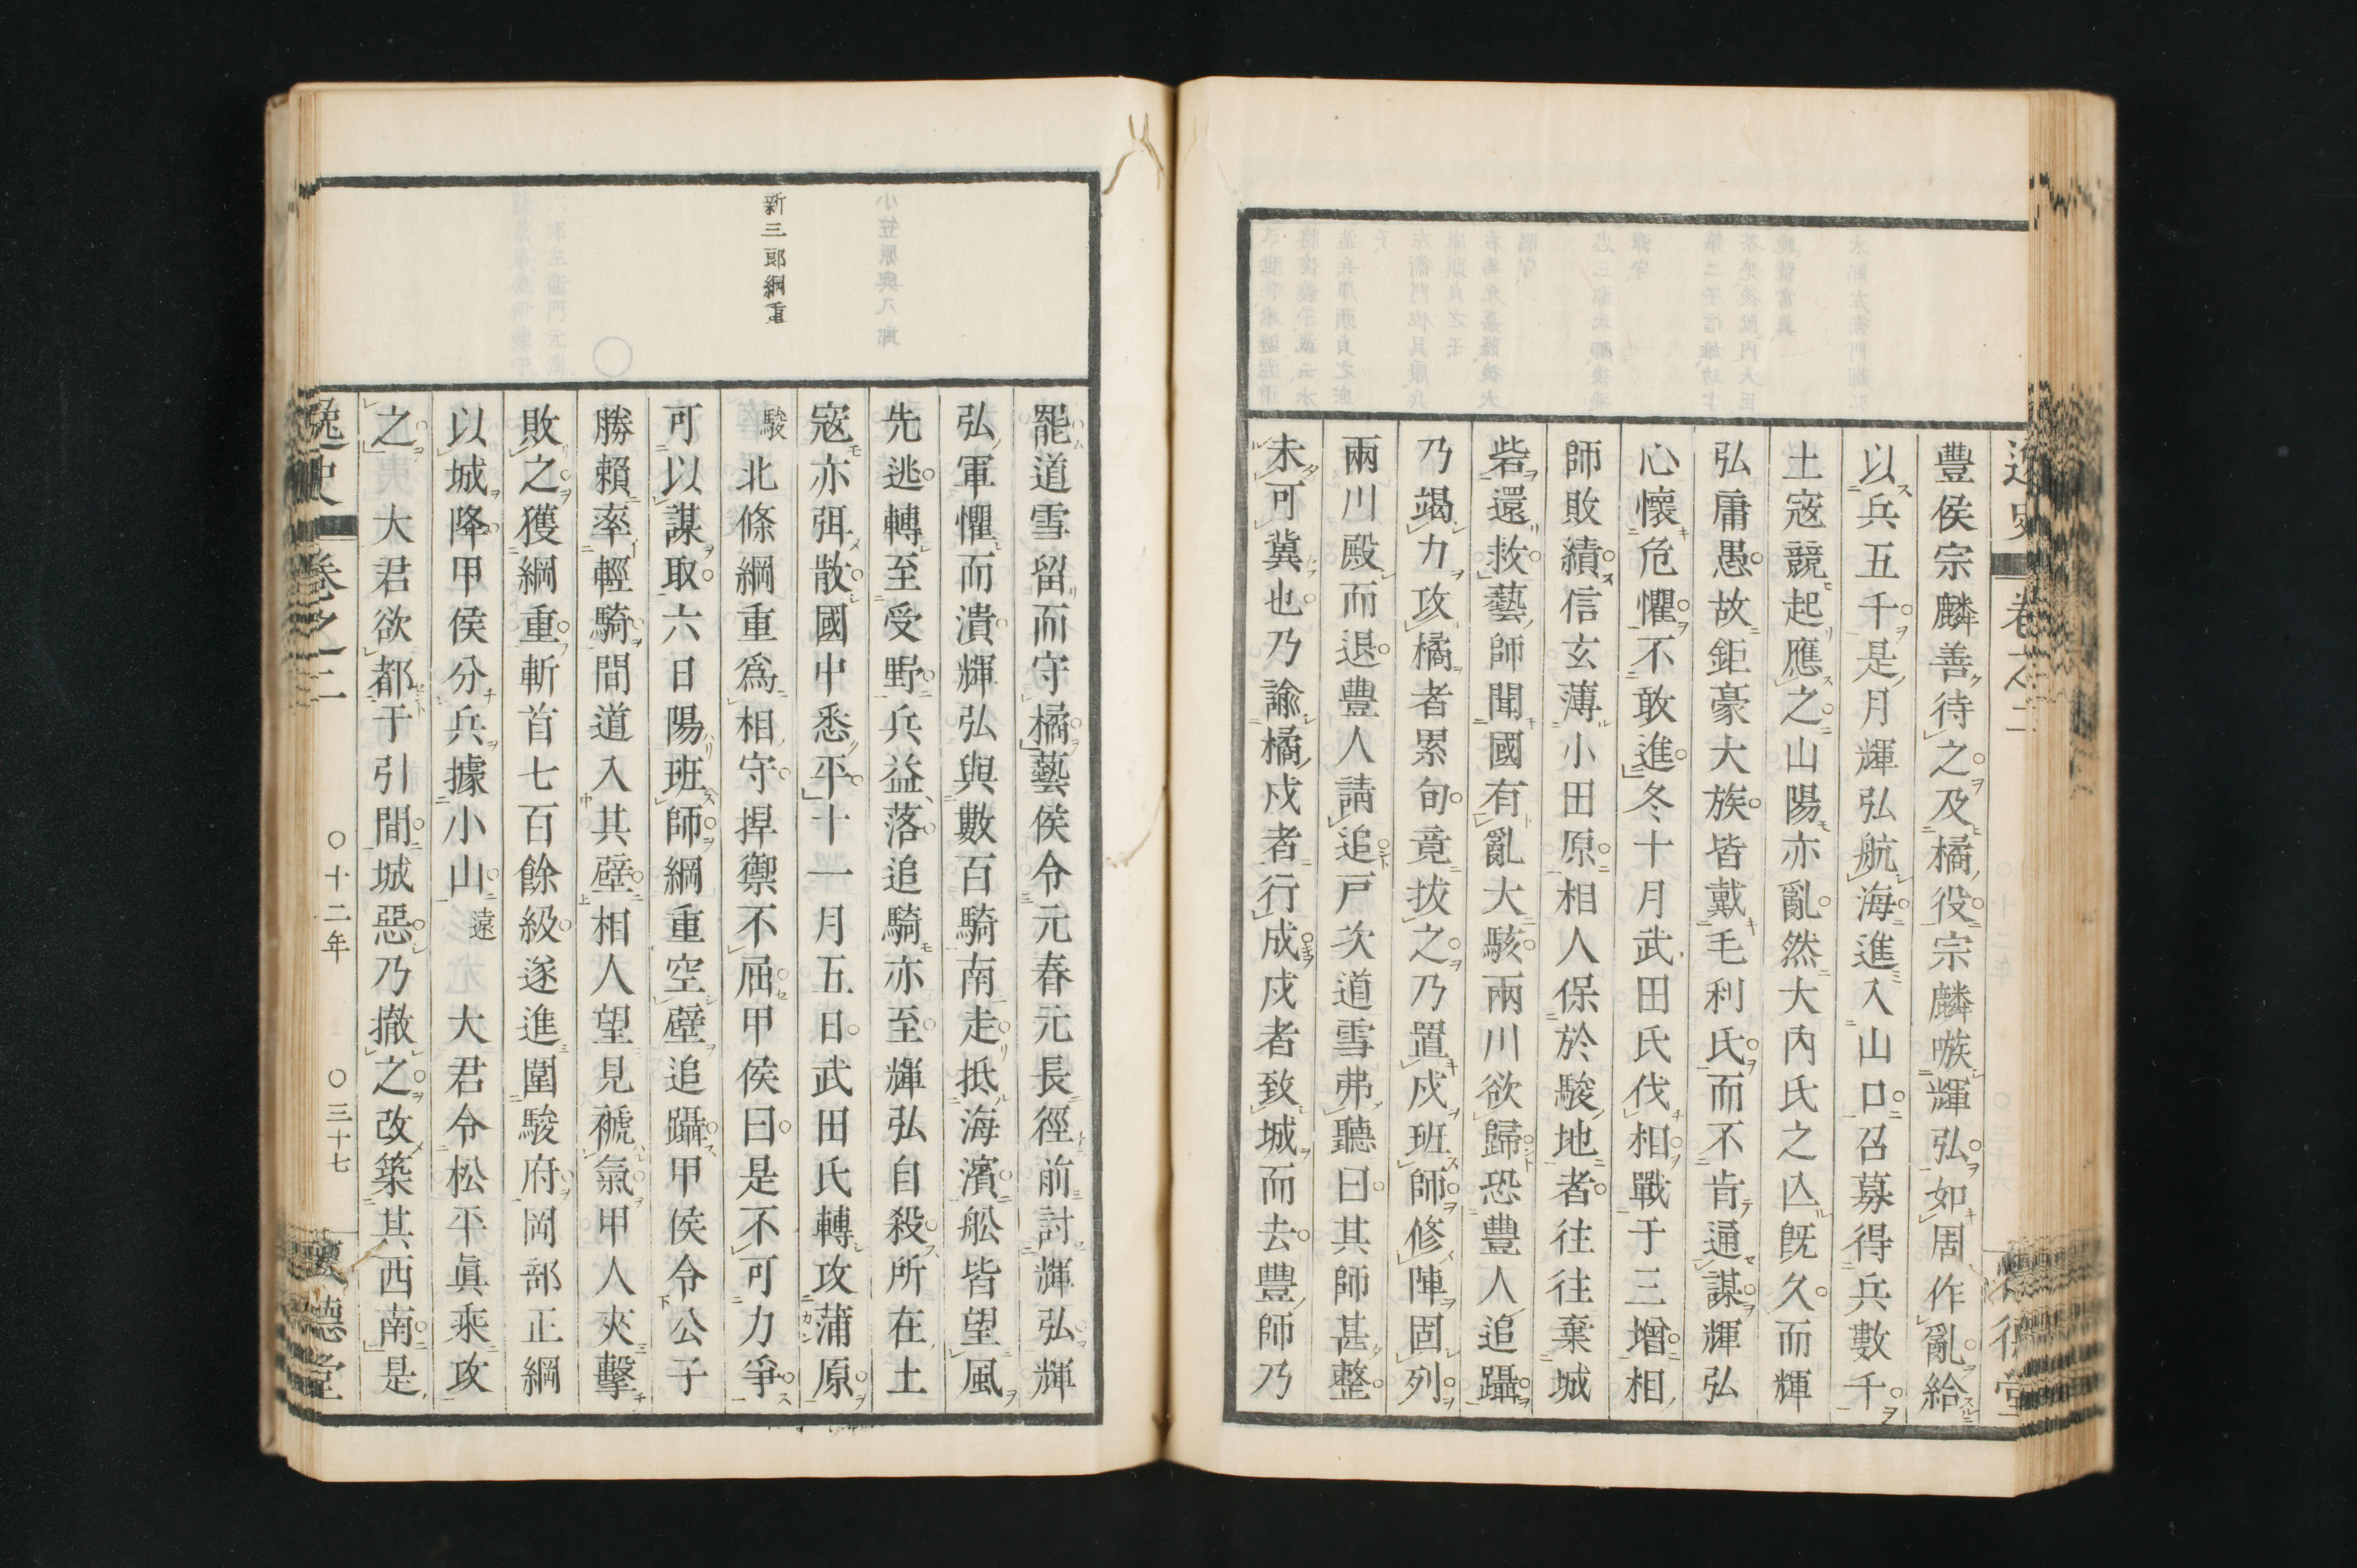 逸史 卷之二
豊侯宗麟善待之及橘役宗麟嗾輝弘如周作亂給
以兵五千是月輝弘航海進入山口召募得兵數千
土寇競起應之山陽亦亂然大內氏之亾既久而輝
弘庸愚故鉅豪大族皆戴毛利氏而不肯通謀輝弘
心懷危懼不敢進冬十月武田氏伐相戰于三增相
師敗績信玄薄小田原相人保於駿地者往往棄城
砦還救藝師聞國有亂大駭兩川欲歸恐豊人追躡
乃竭力攻橘者累旬竟拔之乃置戍班師修陣固列
兩川殿而退豊人請追戸次道雪弗聽曰其師甚整
未可冀也乃諭橘戍者行成戍者致城而去豊師乃
罷道雪留而守橘藝侯令元春元長徑前討輝弘輝
弘軍懼而潰輝弘與數百騎南走抵海濱舩皆望風
先逃轉至受野兵益落追騎亦至輝弘自殺所在土
寇亦弭散國中悉平十一月五日武田氏轉攻蒲原
駿北條綱重爲相守捍禦不屈甲侯曰是不可力爭
可以謀取六日陽班師綱重空壁追躡甲侯令公子
勝賴率輕騎間道入其壁相人望見褫氣甲人夾擊
敗之獲綱重斬首七百餘級遂進圍駿府岡部正綱
以城降甲侯分兵據小山遠大君令松平眞乘攻
之大君欲都于引間城惡乃撤之改築其西南是
新三郎綱重
逸史 卷之二 〇十二年 〇三十七 懷德堂